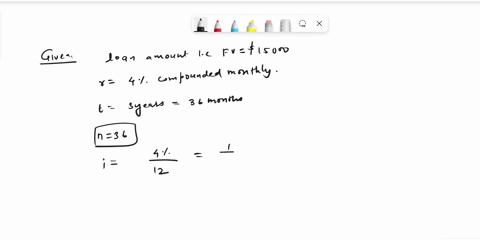 Given: loan amount i.e FV = $15000
r = 4% compounded monthly.
t = 3years = 36 months
n=36
i = 4%/12 = 1